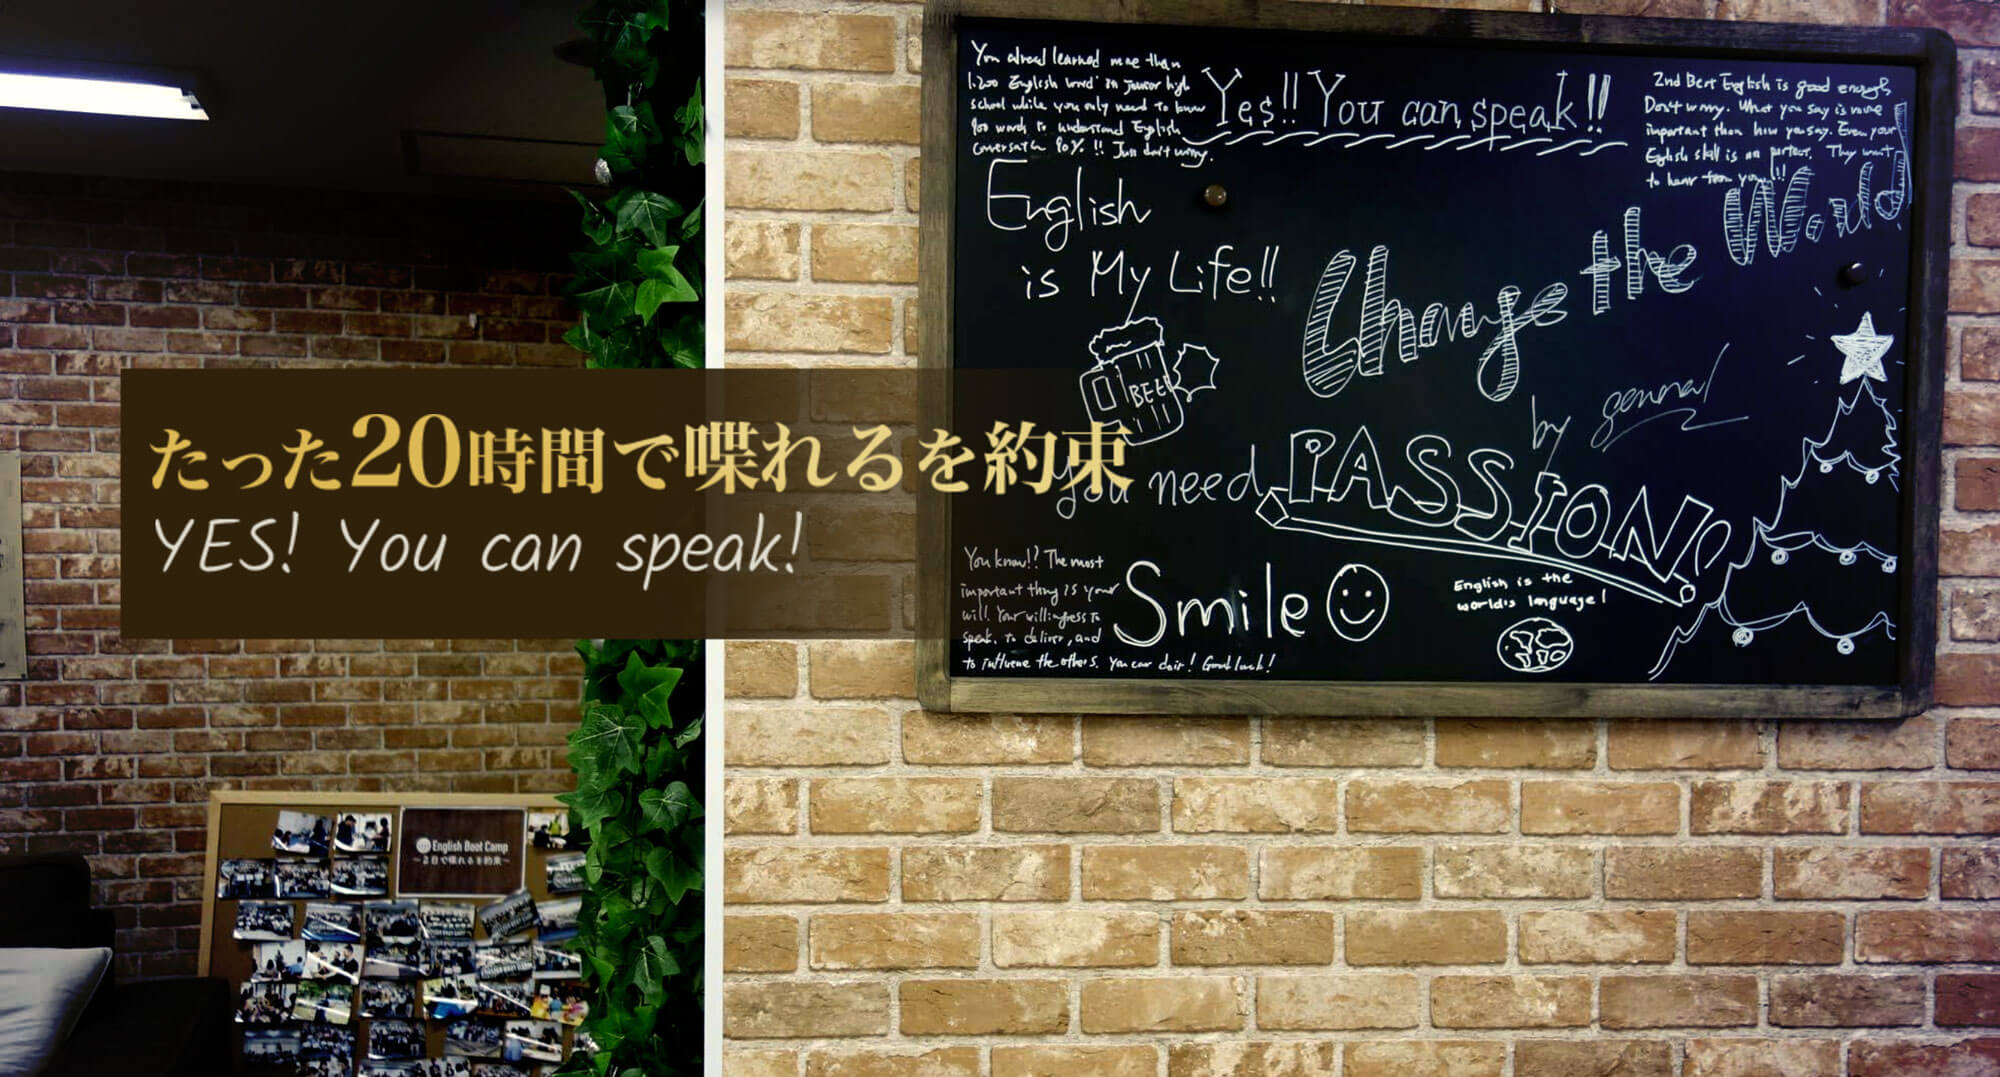 たった20時間で喋れるを約束
YES! You can speak!
You alread learned more than
1,200 English word in junior high
school while you only need to know
900 words to understand English
conversatin 90% !! Just don't worry.
Yes!! You can speak!!
2nd Best English is good enough
Don't worry. What you say is more
important than how you say. Even your
English skill is no perfect. They want
to hear from you!!!
English
is My Life!!
Change the World
by general
BEER
You need PASSION!
You know!? The most
important thing is your
will. Your willingness to
speak, to deliver, and
to influence the others. You can do it! Good luck!
Smile
English is the
world's language!
English Boot Camp
~2日で喋れるを約束~